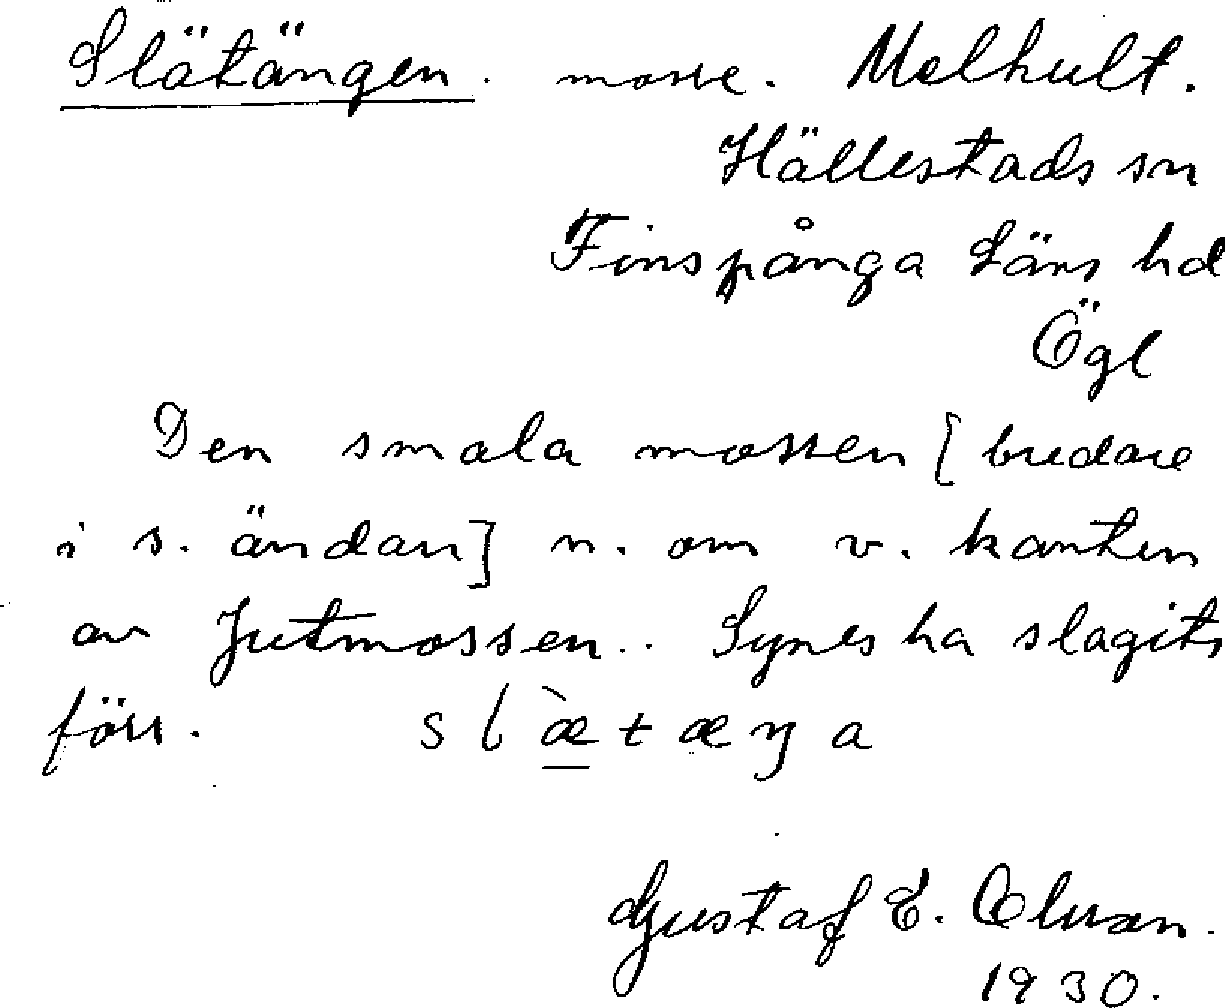 Slätängen. mosse. Melhult.
Hällestads sn
Finspånga Läns hd
Ögl
Den smala mossen [bredare
i s. ändan] n. om v. kanten
av Jutmossen.. Synes ha slagits
förr. slæ̀tæŋa
Gustaf E. Olsson.
1930.